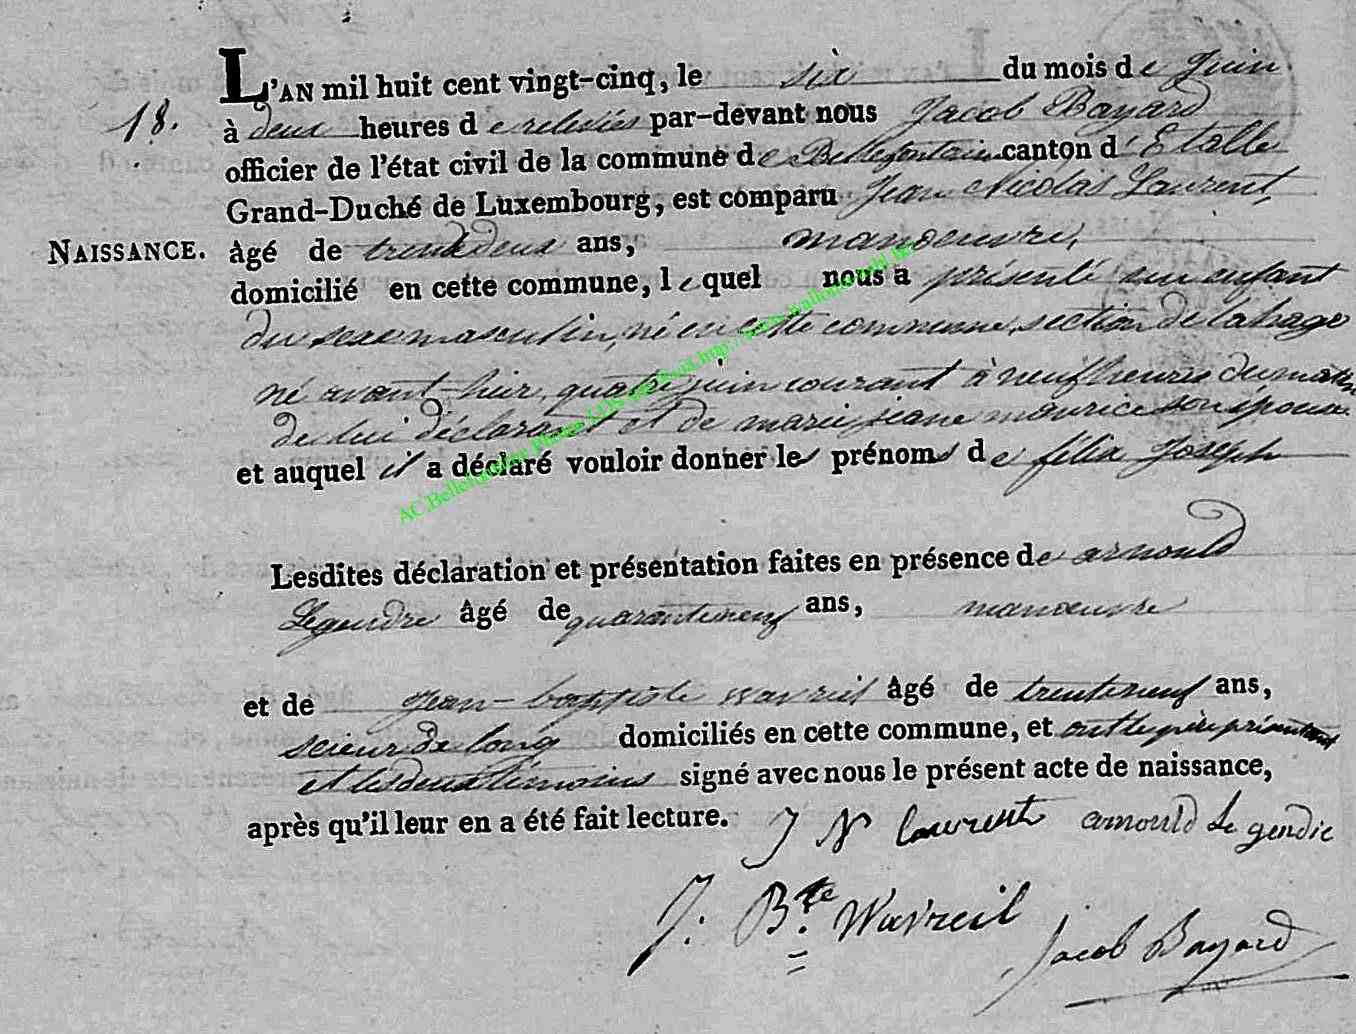 L'AN mil huit cent vingt-cinq, le six du mois de Juin
18. à deux heures de relevées par-devant nous Jacob Bayard
officier de l'état civil de la commune de Bellefontaine canton d'Etalle
Grand-Duché de Luxembourg, est comparu Jean Nicolas Laurent,
NAISSANCE. âgé de trente deux ans, manoeuvre,
domicilié en cette commune, lequel nous a présenté un enfant
du sexe masculin, né en cette commune, section de lahage
né avant hier, quatre juin courant à neuf heures du matin
de lui déclarant et de marie jeane maurice son épouse
et auquel il a déclaré vouloir donner les prénoms de félix Joseph
Lesdites déclaration et présentation faites en présence de arnould
Legendre âgé de quaranteneuf ans, manoeuvre
et de jean-baptiste wavreil âgé de trenteneuf ans,
scieur de long domiciliés en cette commune, et ont le père présentant
et les deux témoins signé avec nous le présent acte de naissance,
après qu'il leur en a été fait lecture. J N laurent arnould Le gendre
J. B.te Wavreil
Jacob Bayard
AC Bellefontaine